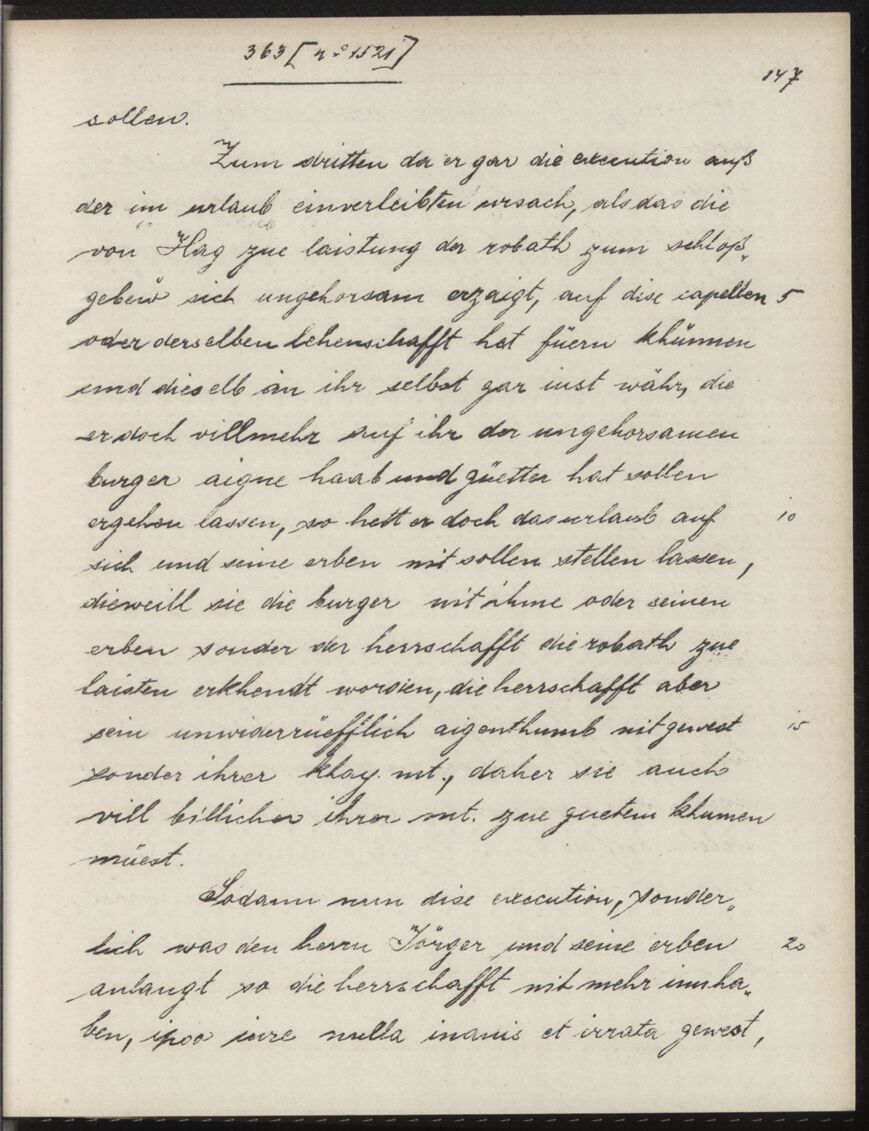 363 [n° 1521]
147
sollen.
Zum dritten da er gar die execution auß
der im urlaub einverleibten ursach, als das die
von Hag zue laistung der robath zum schloß„
gebew sich ungehorsam erzaigt, auf dise capellen 5
oder derselben lehenschafft hat füern khünnen
und dieselb an ihr selbst gar iust währ, die
er doch villmehr auf ihr der ungehorsamen
burger aigne haab und güetter hat sollen
ergehen lassen, so hett er doch das urlaub auf 10
sich und seine erben nit sollen stellen lassen,
dieweill sie die burger nit ihme oder seinen
erben sonder der herrschafft die robath zue
laisten erkhendt worden, die herrschafft aber
sein unwiderrüefflich aigenthumb nit gewest 15
sonder ihrer khay. mt., daher sie auch
vill billicher ihrer mt. zue guetem khumen
müest.
Sodann nun dise execution, sonder„
lich was den herrn Jörger und seine erben 20
anlangt so die herrschafft nit mehr innha„
ben, ipso iure nulla inanis et irrata gewest,